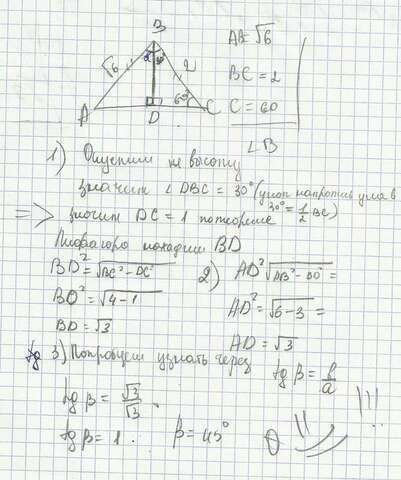 B
√6
2
30
60°
A
D
C
AB = √6
BC = 2
C = 60
∠B
1) Опустим на высоту
значит ∠DBC = 30° (угол напротив угла в
30° = 1/2 BC)
=> значит DC = 1 по теореме
Пифагора находим BD
BD² = √BC² - DC²
BD² = √4-1
BD = √3
2) AD² √AB² - BD² =
AD² = √6-3 =
AD = √3
3) Попробуем узнать через
tg β = b/a
tg β = √3/√3
tg β = 1
β = 45°
!!!